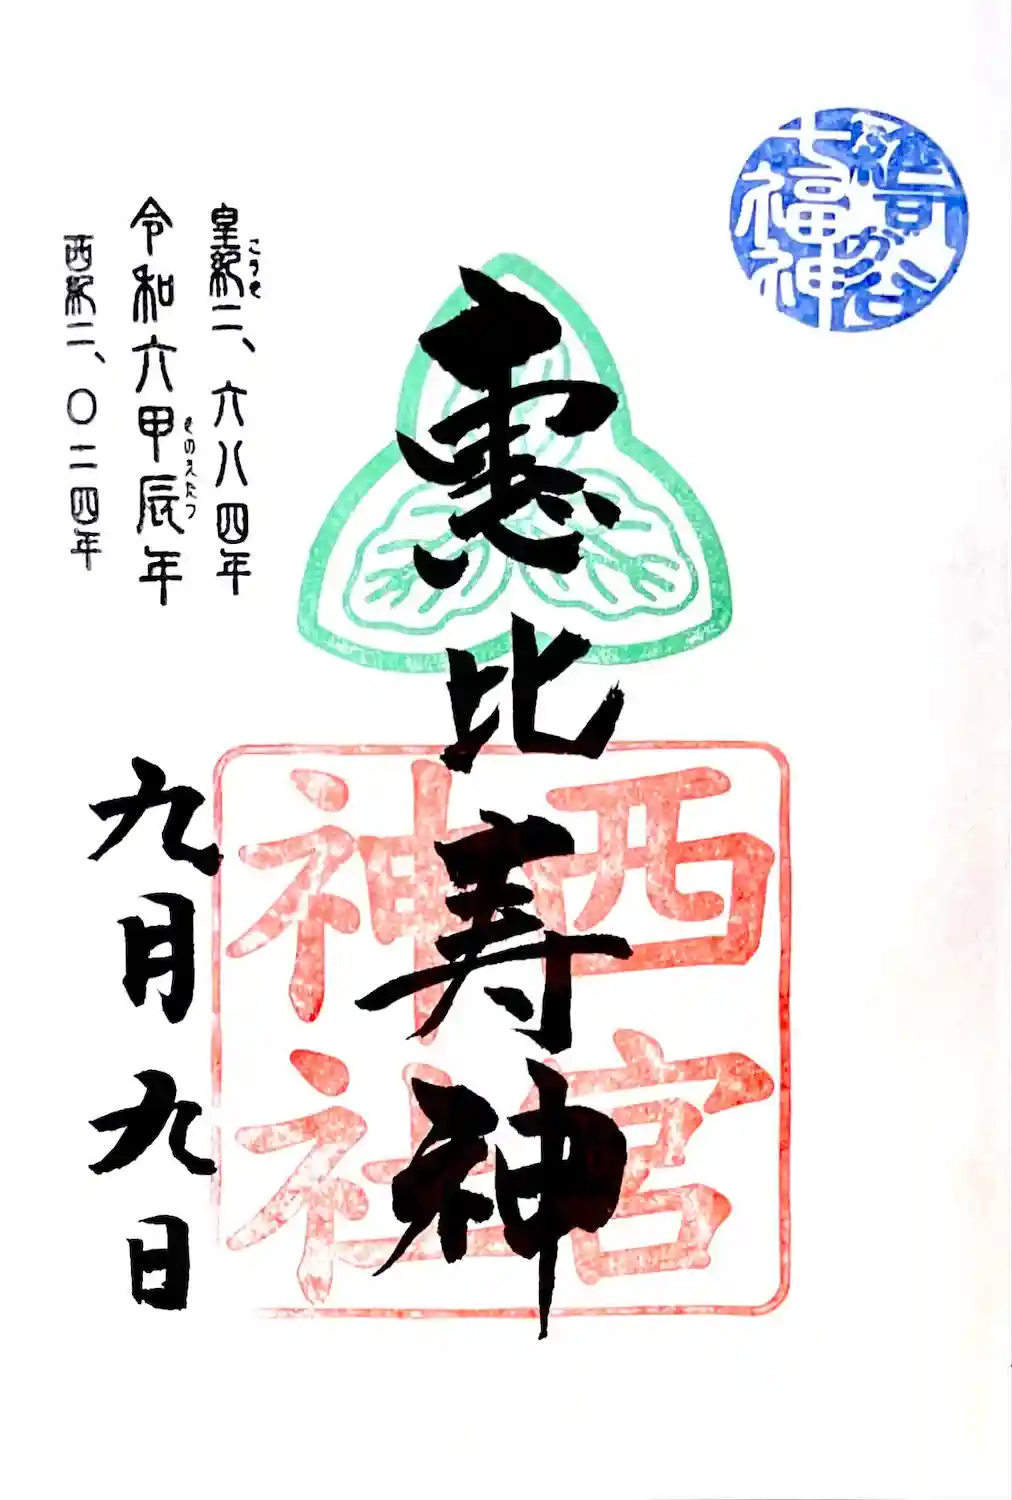 新宿が谷
七福神
恵比寿神
西宮
神社
皇紀二、六八四年
こうき
令和六甲辰年
きのえたつ
西暦二、〇二四年
九月九日